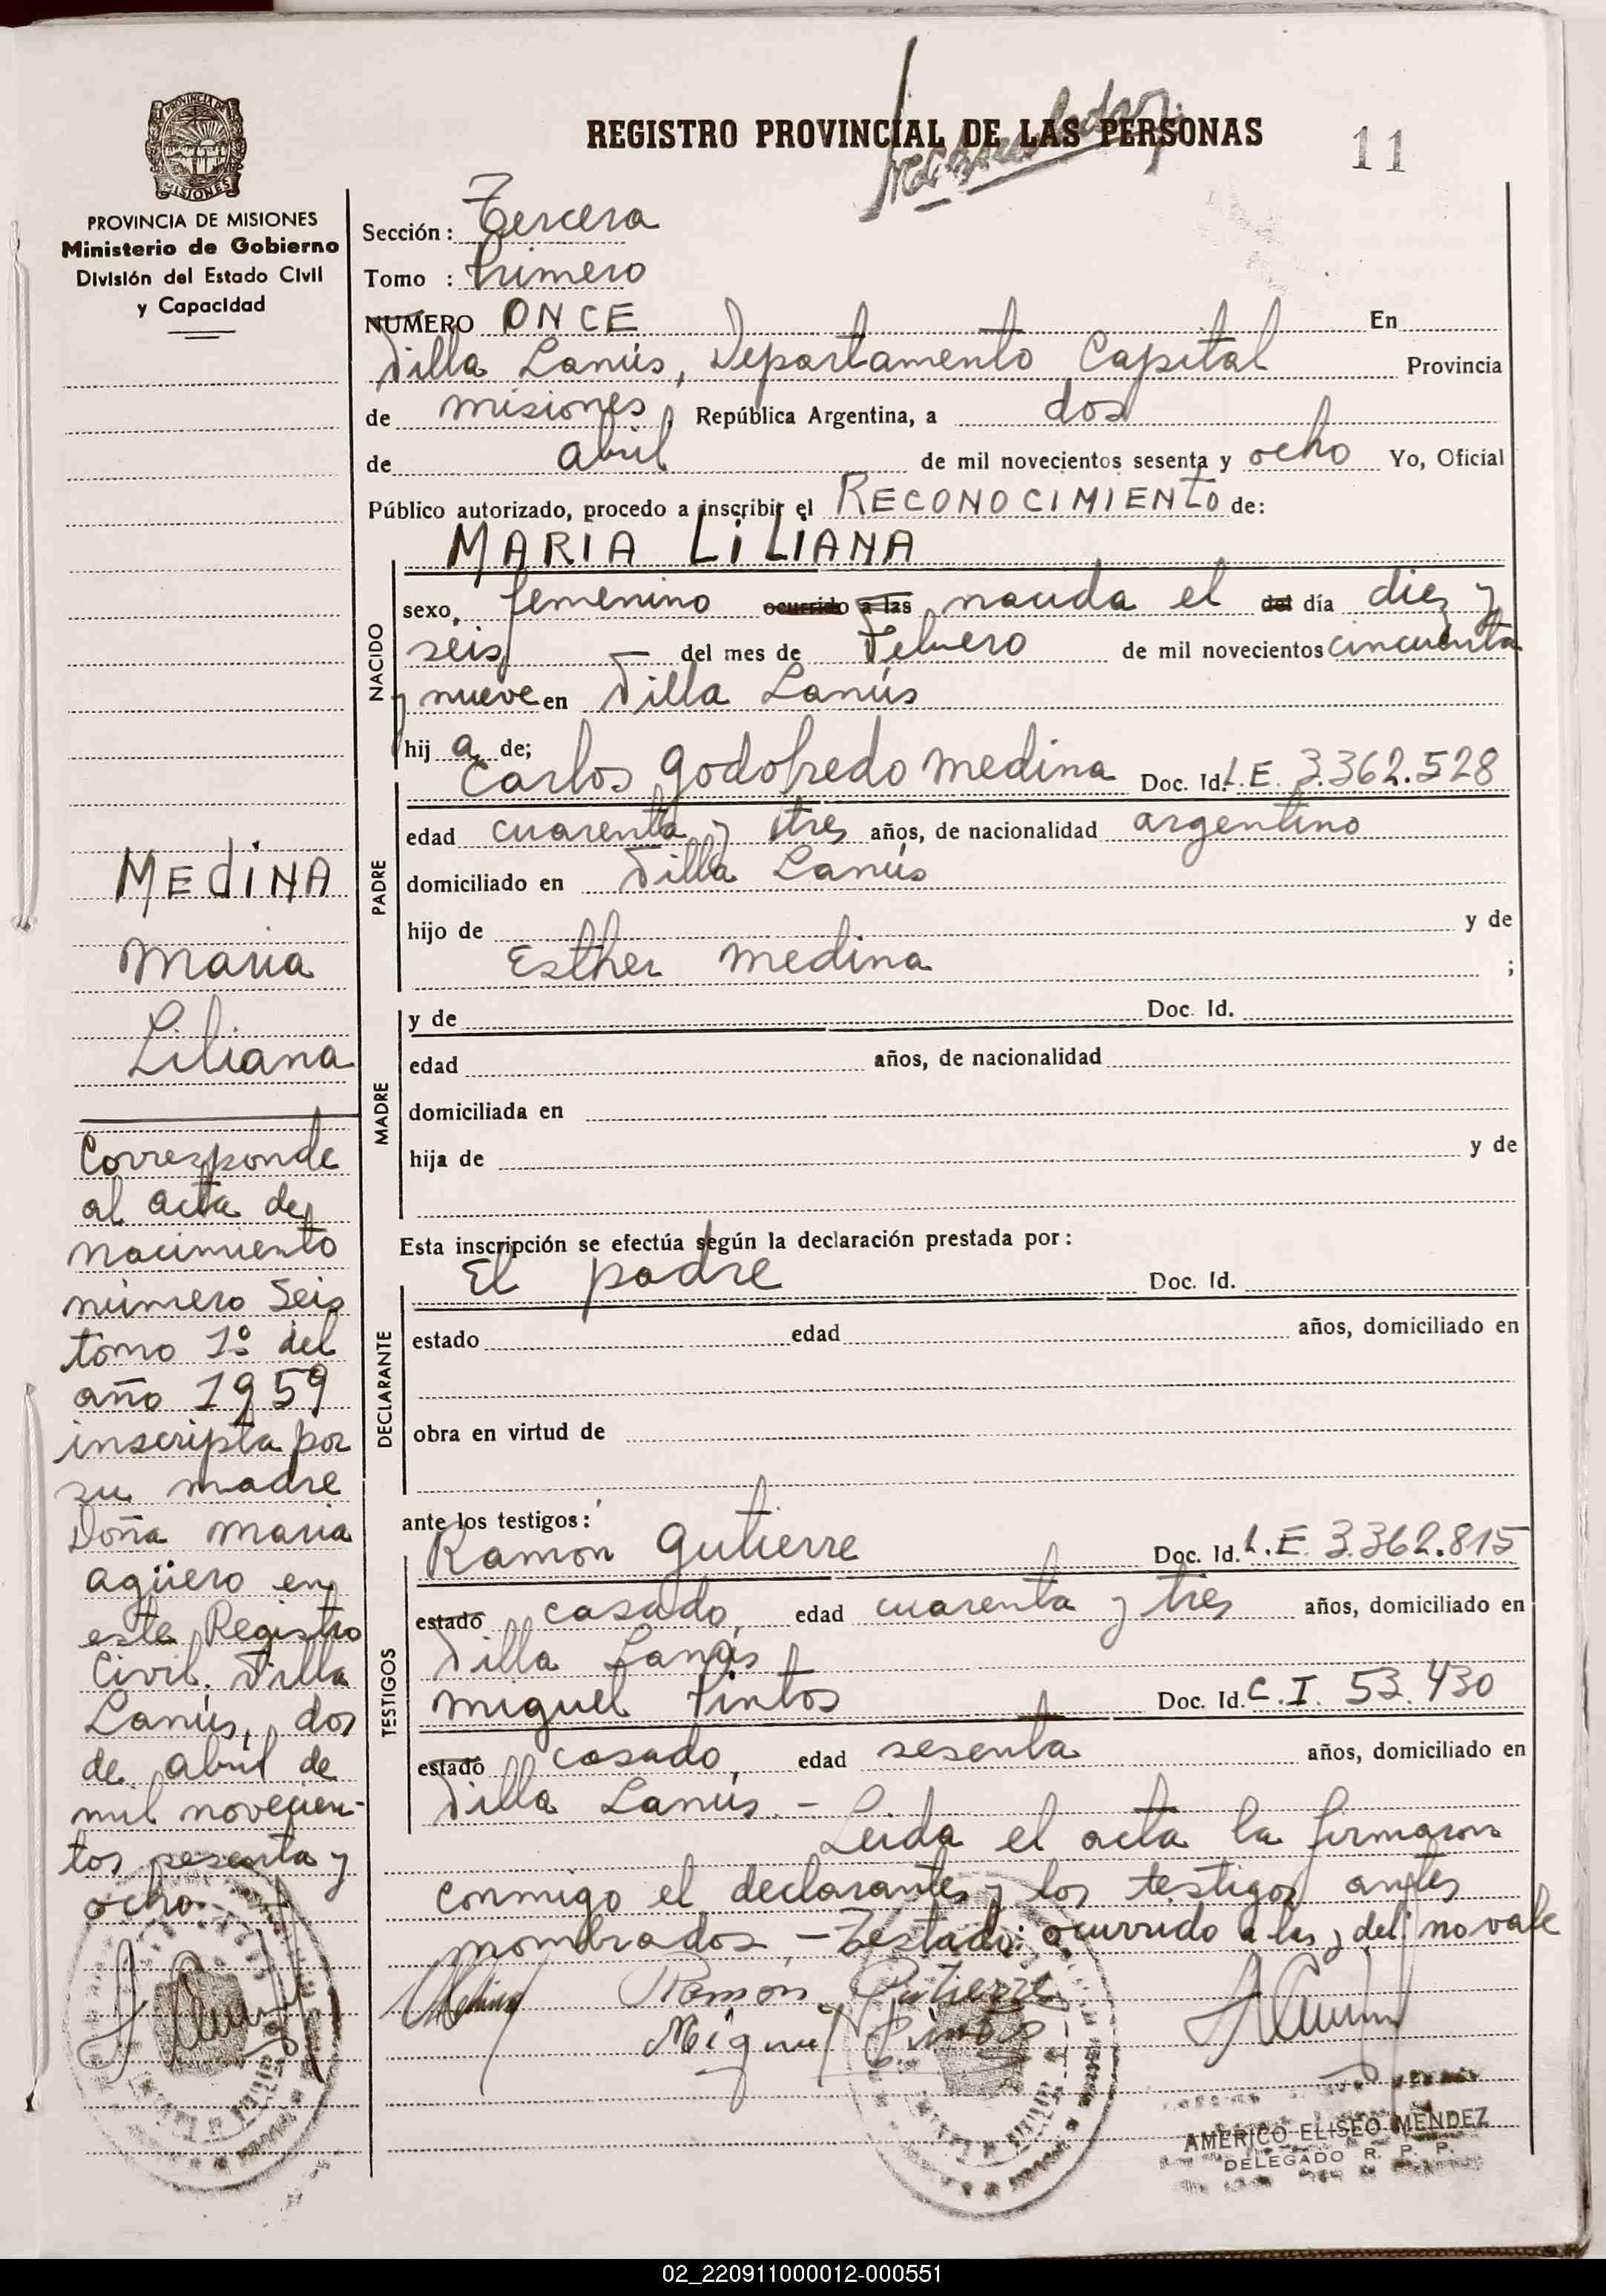 REGISTRO PROVINCIAL DE LAS PERSONAS
11
PROVINCIA DE MISIONES
PROVINCIA DE MISIONES
Ministerio de Gobierno
División del Estado Civil
y Capacidad
Sección: Tercera
Tomo : Primero
NUMERO ONCE En
Villa Lanús, Departamento Capital Provincia
de Misiones, República Argentina, a dos
de abril de mil novecientos sesenta y ocho Yo, Oficial
Público autorizado, procedo a inscribir el RECONOCIMIENTO de:
MARIA LILIANA
NACIDO
sexo, femenino ocurrido a las nacida el del día diez y
seis del mes de Febrero de mil novecientos cincuenta
y nueve en Villa Lanús
hij a de;
PADRE
Carlos Godofredo Medina Doc. Id. L.E. 3.362.528
edad cuarenta y tres años, de nacionalidad argentino
domiciliado en Villa Lanús
hijo de y de
Esther Medina ;
MADRE
y de Doc. Id.
edad años, de nacionalidad
domiciliada en
hija de y de
Esta inscripción se efectúa según la declaración prestada por:
DECLARANTE
El padre Doc. Id.
estado edad años, domiciliado en
obra en virtud de
ante los testigos:
TESTIGOS
Ramon Gutierre Doc. Id. L.E. 3.362.815
estado casado, edad cuarenta y tres años, domiciliado en
Villa Lanús
Miguel Pintos Doc. Id. C.I. 53.430
estado casado, edad sesenta años, domiciliado en
Villa Lanús.-
Leida el acta la firmaron
conmigo el declarante y los testigos antes
nombrados - Testado: ocurrido a las, del: no vale
Ramón Gutierre
Miguel Pintos
AMERICO ELISEO MENDEZ
DELEGADO R. P. P.
MEDINA
Maria
Liliana
Corresponde
al acta de
nacimiento
número Seis
tomo 1º del
año 1959
inscripta por
su madre
Doña Maria
Agüero en
este Registro
Civil. Villa
Lanús, dos
de abril de
mil novecien-
tos sesenta y
ocho.
02_220911000012-000551